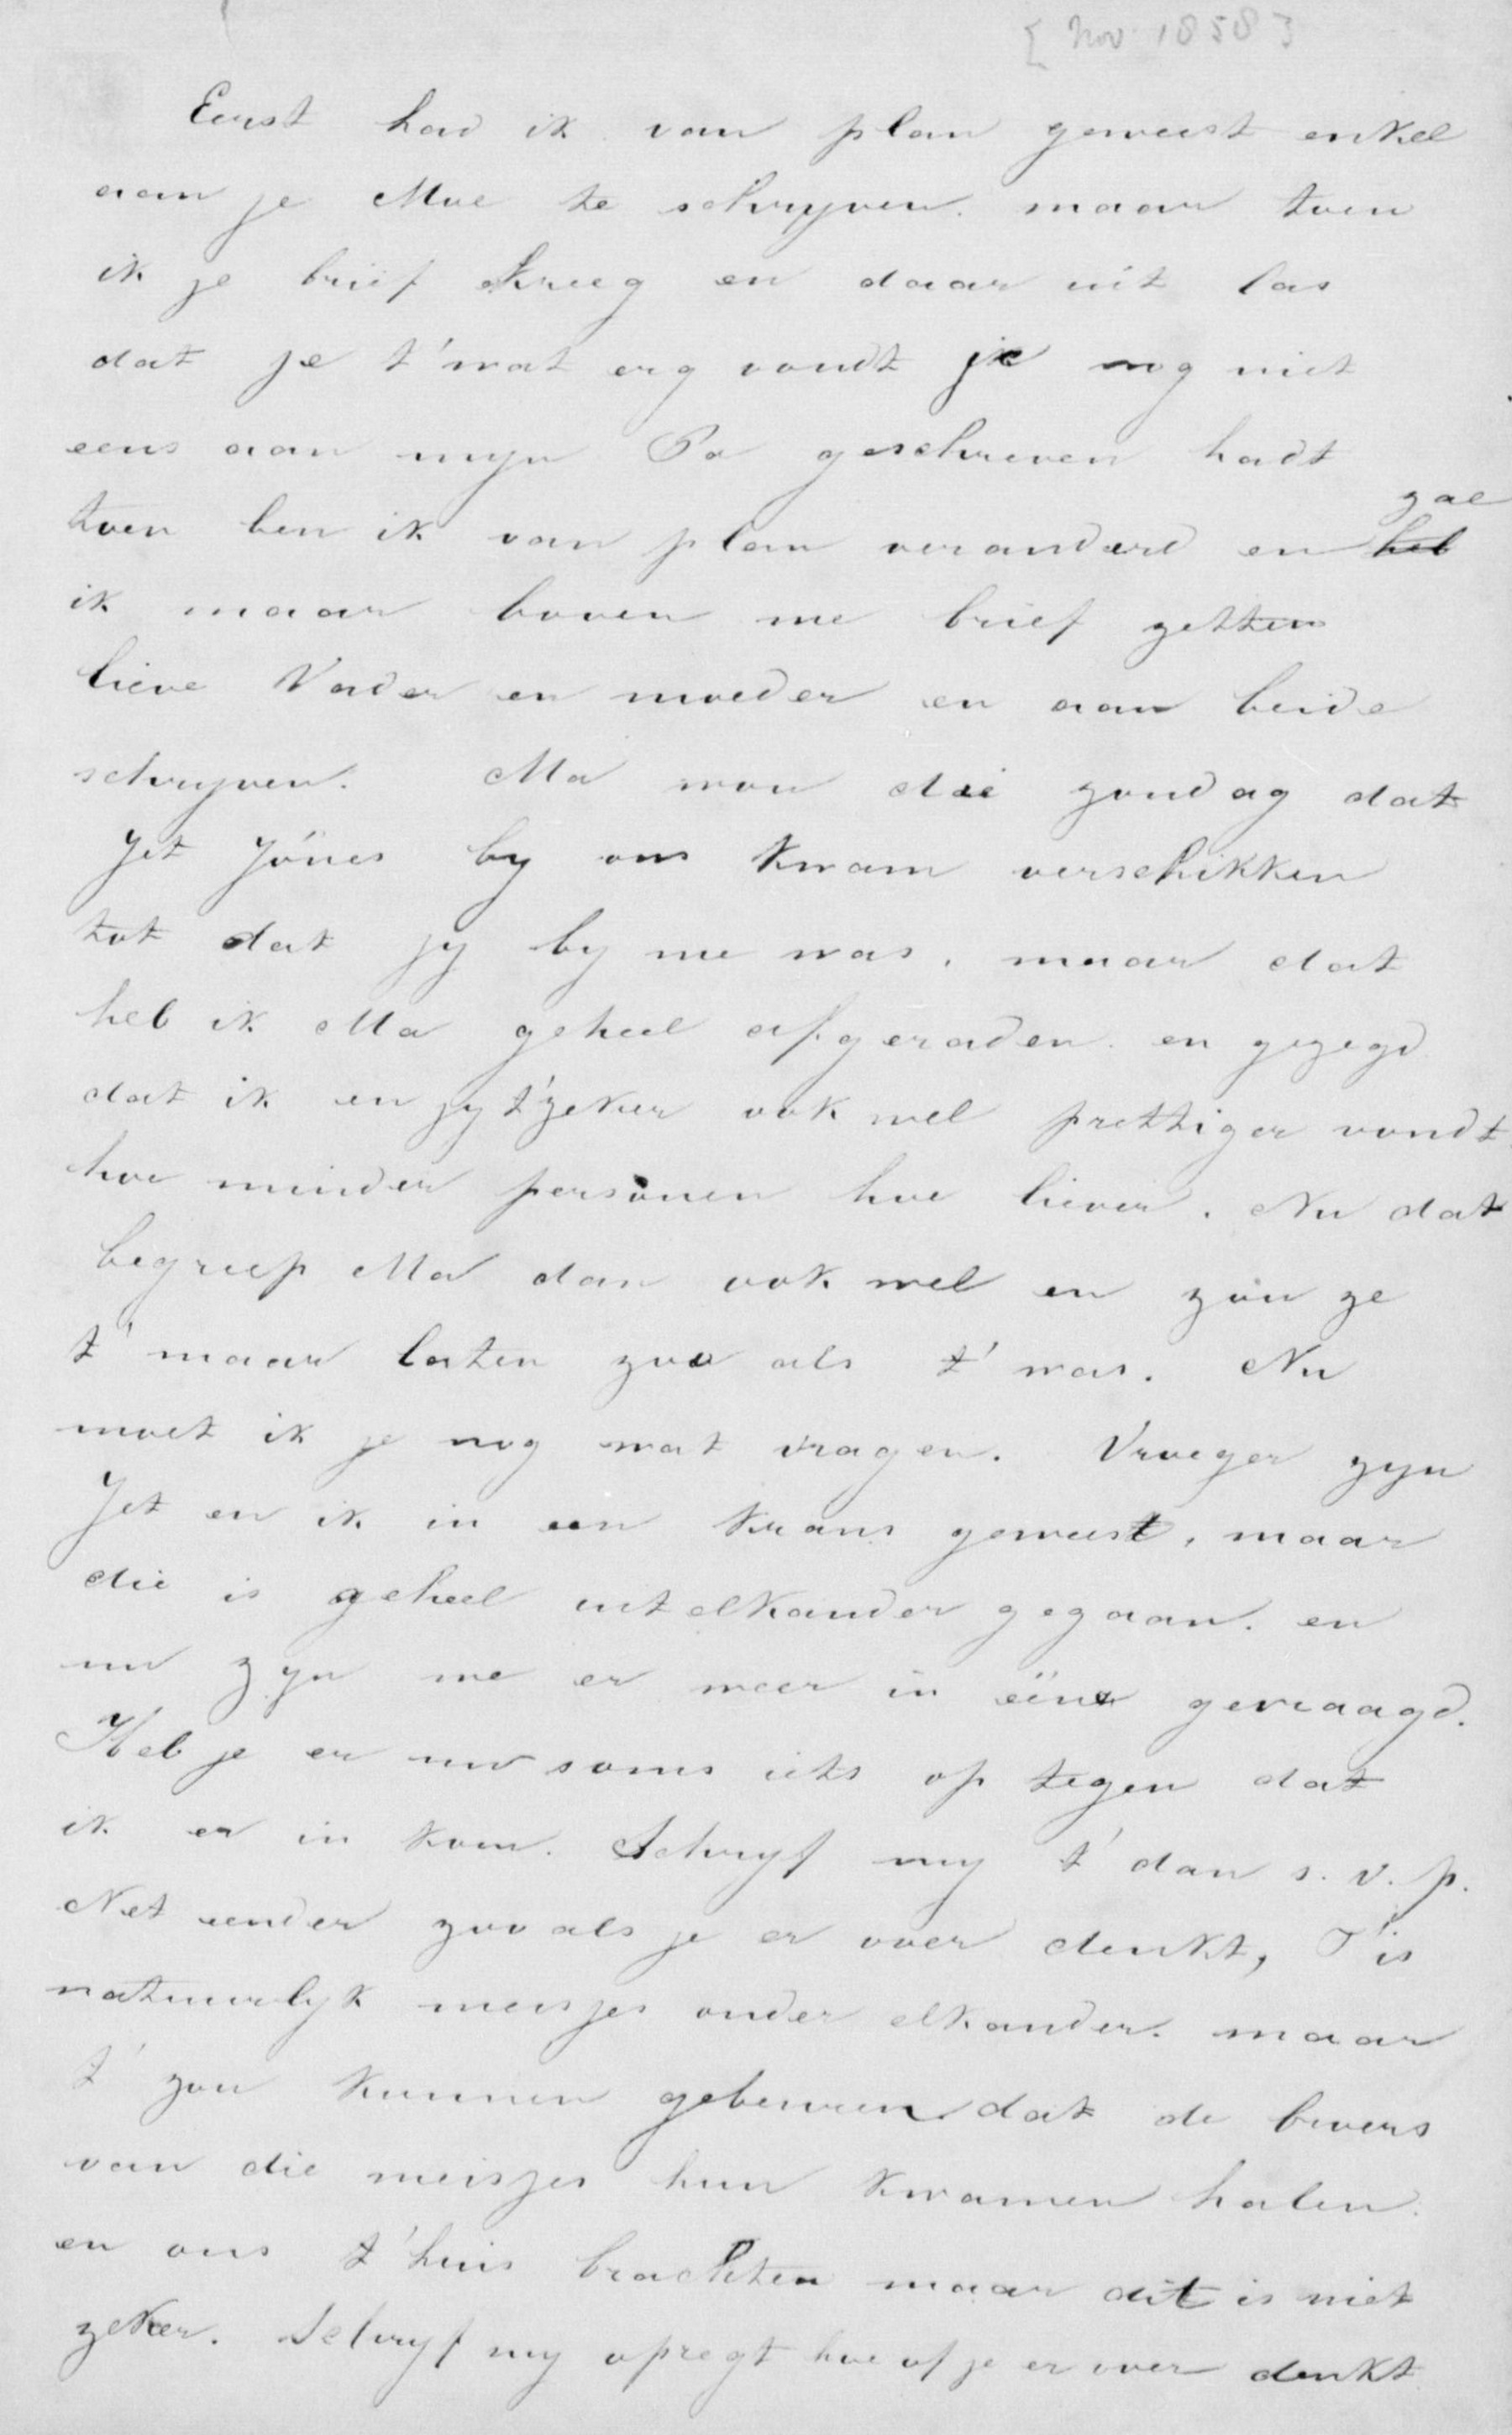 [Nov 1858]
Eerst had ik van plan geweest enkel
aan je Moe te schryven. maar toen
ik je brief kreeg en daar uit las
dat je t'wat erg vondt je nog niet
eens aan myn Pa geschreven hadt
zal
toen ben ik van plan veranderd en heb
ik maar boven me brief zetten
lieve Vader en moeder en aan beide
schryven. Ma wou die zondag dat
Jet Jönes by ons kwam verschikken
tot dat jy by me was, maar dat
heb ik Ma geheel afgeraden. en gezegd
dat ik en jy t'zeker ook wel prettiger vondt
hoe minder personen hoe liever. Nu dat
begreep Ma dan ook wel en zou ze
t' maar laten zoo als t' was. Nu
moet ik je nog wat vragen. Vroeger zyn
Jet en ik in een krans geweest, maar
die is geheel uit elkander gegaan. en
nu zyn we er weer in ééne gevraagd.
Heb je er nu soms iets op tegen dat
ik er in kom. Schryf my t' dan s. v. p.
Net eender zoo als je er over denkt, T'is
natuurlyk meisjes onder elkander. maar
t' zou kunnen gebeuren dat de broers
van die meisjes hun kwamen halen.
en ons t'huis brachten maar dit is niet
zeker. Schryf my opregt hoe of je er over denkt